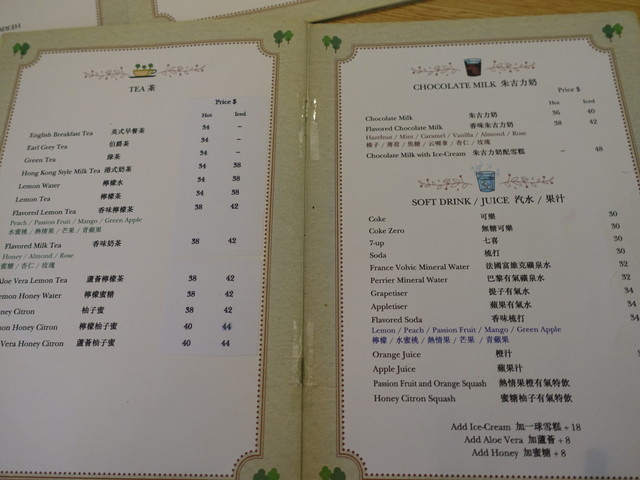 TEA 茶
Price $
Hot Iced
English Breakfast Tea 英式早餐茶 34 –
Earl Grey Tea 伯爵茶 34 –
Green Tea 綠茶 34 –
Hong Kong Style Milk Tea 港式奶茶 34 38
Lemon Water 檸檬水 34 38
Lemon Tea 檸檬茶 34 38
Flavored Lemon Tea 香味檸檬茶 38 42
Peach / Passion Fruit / Mango / Green Apple
水蜜桃 / 熱情果 / 芒果 / 青蘋果
Flavored Milk Tea 香味奶茶 38 42
Honey / Almond / Rose
蜜糖 / 杏仁 / 玫瑰
Aloe Vera Lemon Tea 蘆薈檸檬茶 38 42
emon Honey Water 檸檬蜜糖 38 42
oney Citron 柚子蜜 38 42
mon Honey Citron 檸檬柚子蜜 40 44
Vera Honey Citron 蘆薈柚子蜜 40 44
CHOCOLATE MILK 朱古力奶
Price $
Hot Iced
Chocolate Milk 朱古力奶 36 40
Flavored Chocolate Milk 香味朱古力奶 38 42
Hazelnut / Mint / Caramel / Vanilla / Almond / Rose
榛子 / 薄荷 / 焦糖 / 云喱拿 / 杏仁 / 玫瑰
Chocolate Milk with Ice-Cream 朱古力奶配雪糕 – 48
SOFT DRINK / JUICE 汽水 / 果汁
Coke 可樂 30
Coke Zero 無糖可樂 30
7-up 七喜 30
Soda 梳打 30
France Volvic Mineral Water 法國富維克礦泉水 32
Perrier Mineral Water 巴黎有氣礦泉水 32
Grapetiser 提子有氣水 34
Appletiser 蘋果有氣水 34
Flavored Soda 香味梳打 34
Lemon / Peach / Passion Fruit / Mango / Green Apple
檸檬 / 水蜜桃 / 熱情果 / 芒果 / 青蘋果
Orange Juice 橙汁
Apple Juice 蘋果汁
Passion Fruit and Orange Squash 熱情果橙有氣特飲
Honey Citron Squash 蜜糖柚子有氣特飲
Add Ice-Cream 加一球雪糕 + 18
Add Aloe Vera 加蘆薈 + 8
Add Honey 加蜜糖 + 8